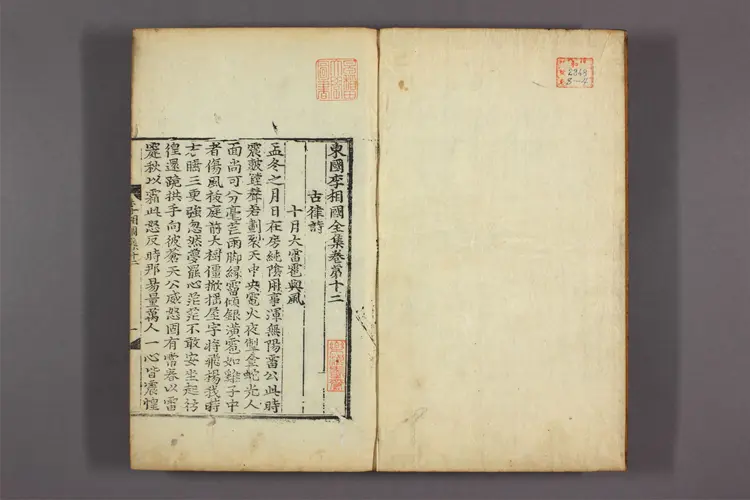 東國李相國全集卷第十二
古律詩
十月大雷雹與風
孟冬之月日在房純陰用事渾無陽雷公此時
震鼓鞺聲若劃裂天中央電火夜掣金蛇光人
面尚可分毫芒雨脚緣霤傾銀潢雹如雞子中
者傷風拔庭前大樹僵撤搖屋宇將飛揚我時
睡三更強忽然驚罷心茫茫不敢安坐起彷
徨還跪拱手向彼蒼天公威怒固有常春以雷
霆秋以霜此怒反時那易量萬人一心皆震惶
相國集十二
2868